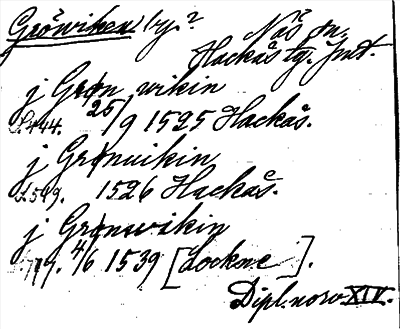 Gröwiken by.? Näs sn.
Hackås tg. Jmt.
j Grøn wikin
s. 444. 25/9 1525 Hackås.
j Grønuikin
s. 549. 1526 Hackås.
j Grønswikin
4/6 1539 [Lockne].
Dipl. norv. XIV.